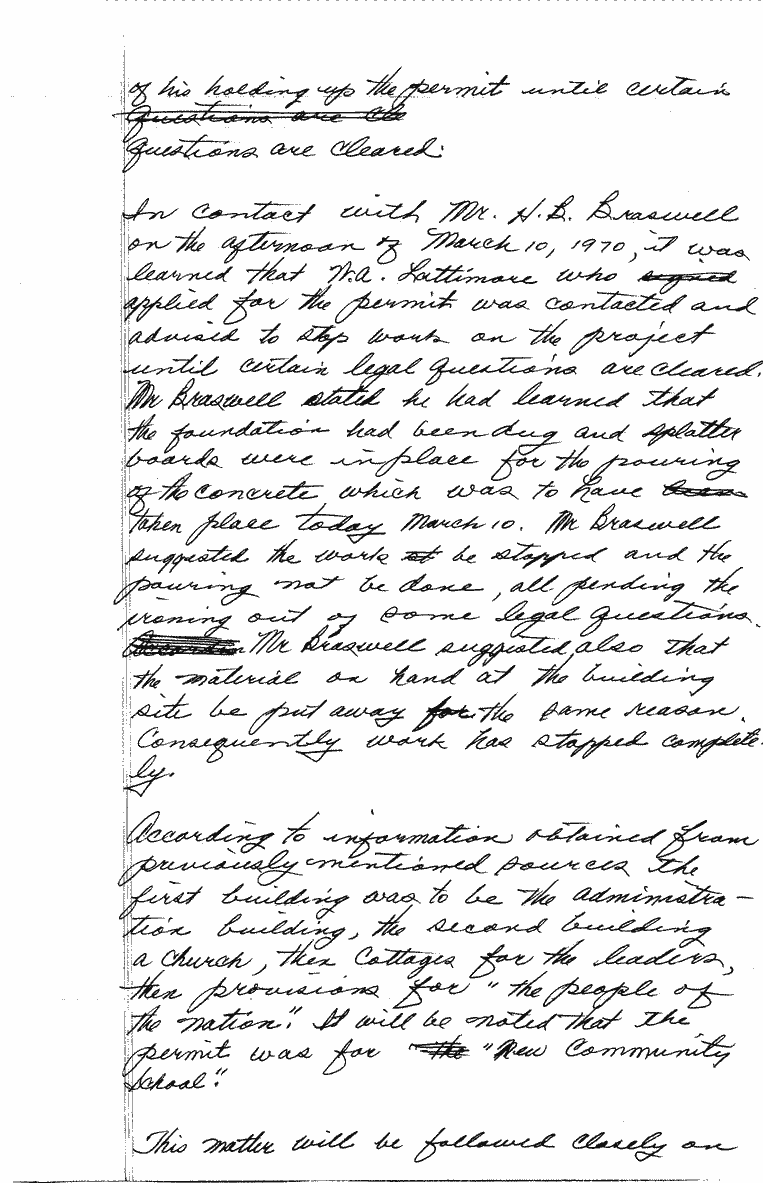 of his holding up the permit until certain
Questions are cle
Questions are cleared.
In contact with Mr. H.B. Braswell
on the afternoon of March 10, 1970, it was
learned that W.A. Lattimore who signed
applied for the permit was contacted and
advised to stop work on the project
until certain legal Questions are cleared.
Mr Braswell stated he had learned that
the foundation had been dug and splatter
boards were in place for the pouring
of the concrete which was to have been
taken place today March 10. Mr Braswell
suggested the work st be stopped and the
pouring not be done, all pending the
ironing out of some legal Questions.
Accordin Mr Braswell suggested also that
the material on hand at the building
site be put away for the same reason.
Consequently work has stopped complete-
ly.
According to information obtained from
previously mentioned sources the
first building was to be the administra-
tion building, the second building
a church, then Cottages for the leaders,
then provisions for "the people of
the nation". It will be noted that the
permit was for "the "New Community
School".
This matter will be followed closely on